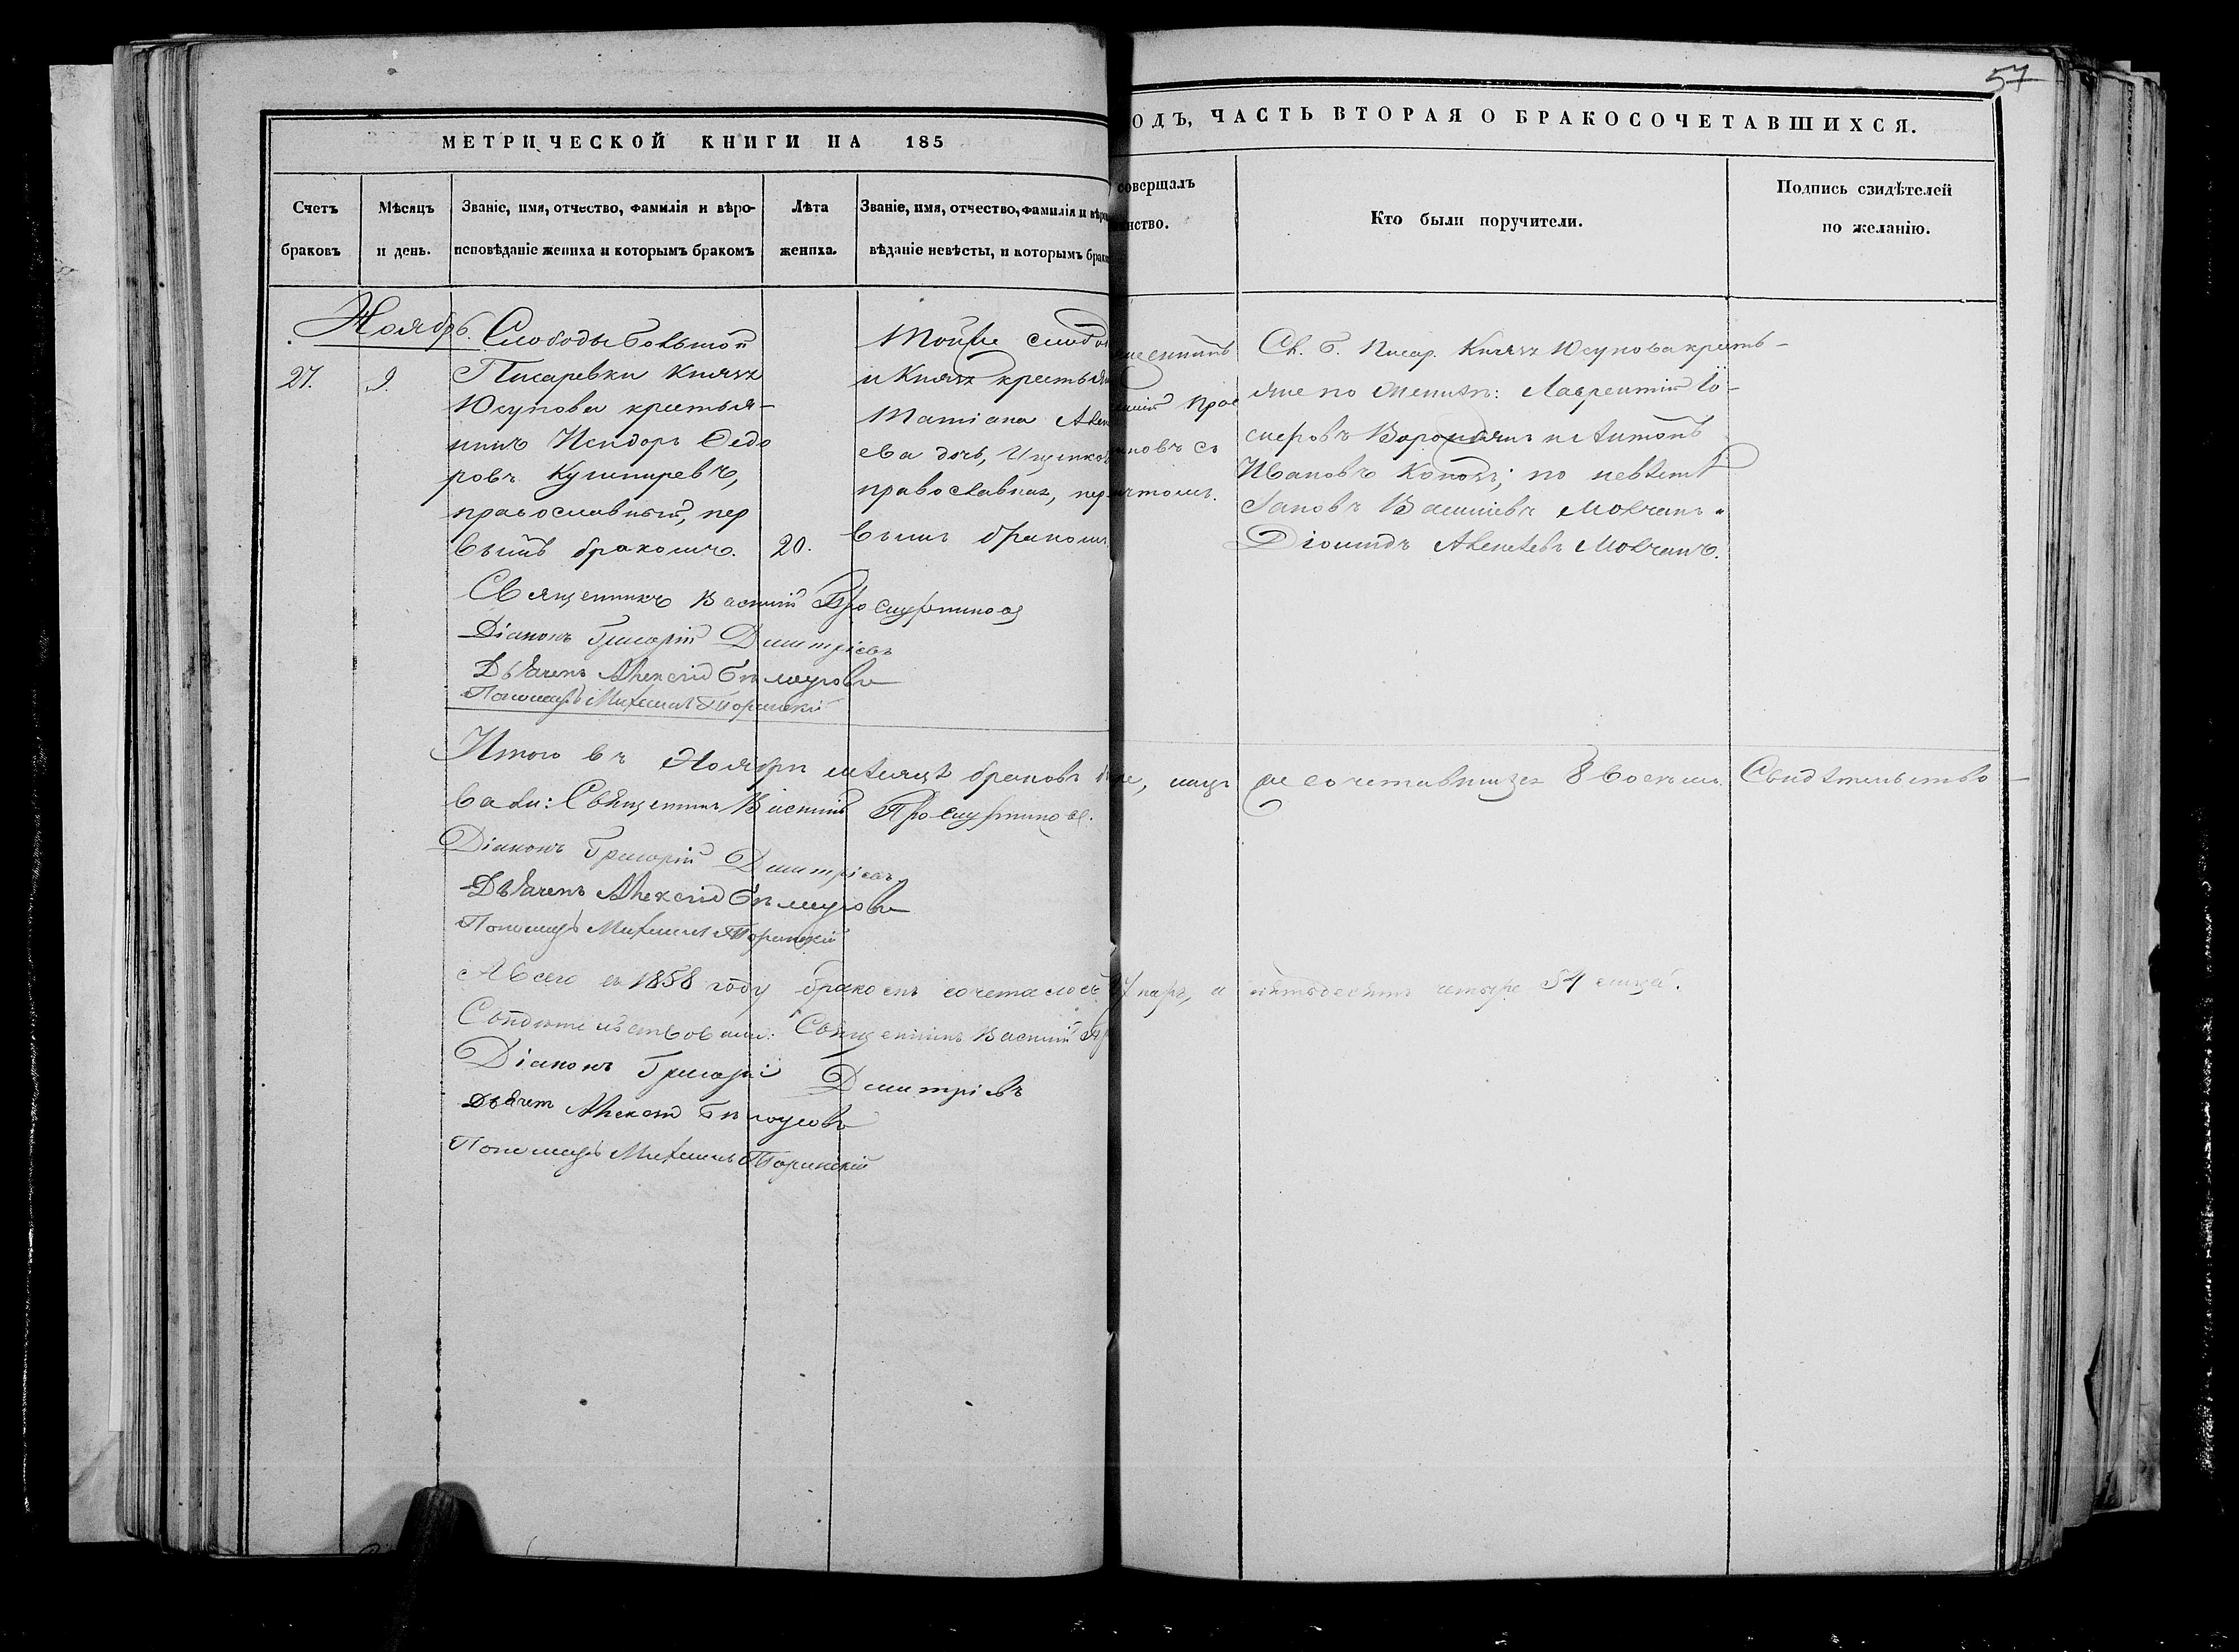 57
МЕТРИЧЕСКОЙ КНИГИ НА 185
ОДЪ, ЧАСТЬ ВТОРАЯ О БРАКОСОЧЕТАВШИХСЯ.
Счетъ
браковъ
Мѣсяцъ
и день.
Званіе, имя, отчество, фамилія и вѣро-
исповѣданіе жениха и которымъ бракомъ
Лѣта
жениха.
Званіе, имя, отчество, фамилія и вѣро
вѣданіе невѣсты, и которымъ брако
совершалъ
инство.
Кто были поручители.
Подпись свидѣтелей
по желанію.
Ноябрь.
27.
9.
Слободы большой
Писаревки Князя
Юсупова крестья-
нинъ Исидоръ Ѳедо
ровъ Кушнаревъ,
православный, пер
вымъ бракомъ.
20.
Той же слобо
и Князя крестьян
Татіана Алек
ева дочь, Ищенков
православная, пер
вымъ бракомъ
Сл. Б. Писар. Князя Юсупова кресть-
яне по женихѣ: Лаврентій
и Антонъ
Ивановъ по невѣстѣ
Мовчанъ и
Діомидъ Алексѣевъ Мовчанъ.
Священникъ Василій
Діаконъ Григорій Дмитріевъ
Дьячекъ Алексій Бѣлоусовъ
Пономарь Михаилъ
Итого въ Ноябрѣ мѣсяцѣ браковъ
лицъ же сочетавшихся 8 восемь. Свидѣтельство-
вали: Священникъ Василій
Діаконъ Григорій Дмитріевъ
Дьячекъ Алексій Бѣлоусовъ
Пономарь Михаилъ
А всего въ 1858 году бракомъ сочеталось 27 паръ, а
пятьдесятъ четыре 54 лица.
Свидѣтельствовали: Священникъ Василій
Діаконъ Григорій Дмитріевъ
Дьячекъ Алексій Бѣлоусовъ
Пономарь Михаилъ